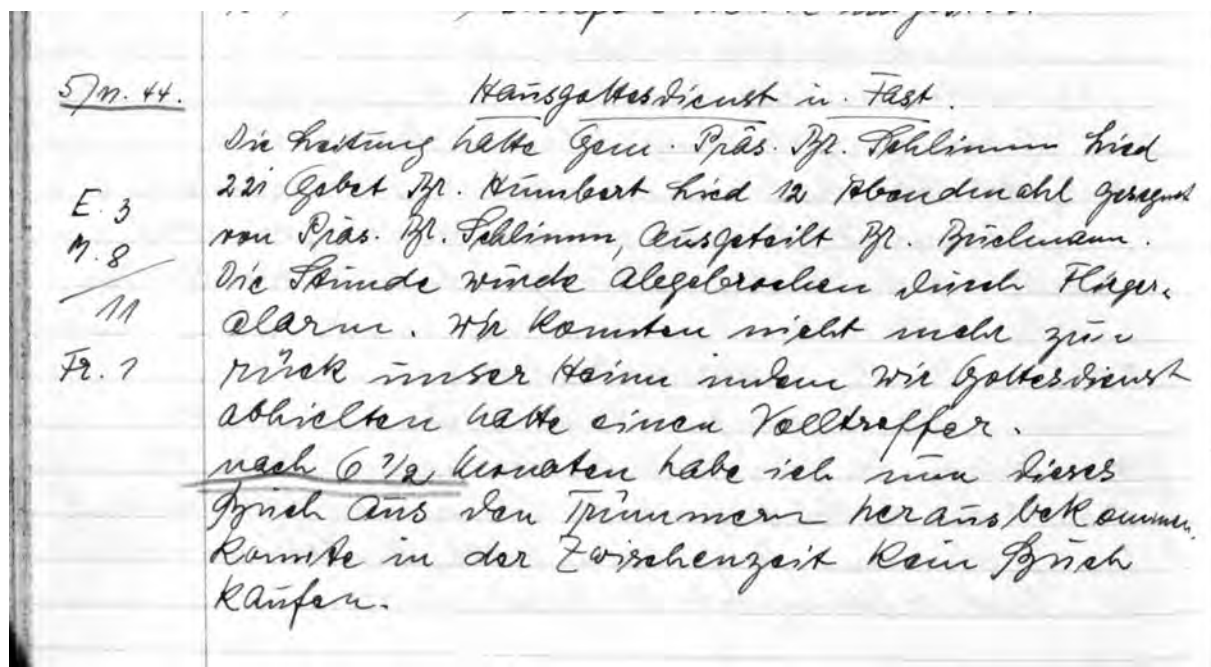 5/11. 44. Hausgottesdienst u. Fast.
Die Leitung hatte Gem. Präs. Br. Schlimm Lied
221 Gebet Br. Humbert Lied 12 Abendmahl gesegnet
E. 3
von Präs. Br. Schlimm, ausgeteilt Br. Buchmann.
M. 8
Die Stunde wurde abgebrochen durch Flieger-
11
alarm. Wir konnten nicht mehr zu-
Fr. 1
rück unser Heim indem wir Gottesdienst
abhielten hatte einen Volltreffer.
nach 6 1/2 Monaten habe ich nun dieses
Buch aus den Trümmern herausbekommen.
konnte in der Zwischenzeit kein Buch
kaufen.